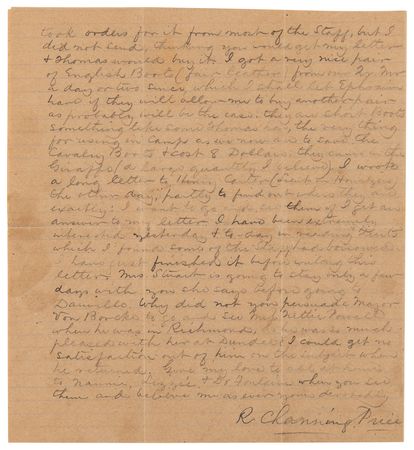 took orders for it from most of the Staff, but I
did not send, thinking you would get my letter
& Thomas would buy it. I got a very nice pair
of English Boots (fair leather) from our Qr Mr
a day or two since, which I shall let Ephraim
have if they will allow me to buy another pair
as probably will be the case. they are short Boots
something like some Thomas has, the very thing
for using in Camp as we now are to save the
Cavalry Boots & cost 8 Dollars they came in the
Giraffe (a large quantity I believe). I wrote
a long letter to
the other day, partly to find out where they are
exactly: I want to go to see them if I get an
answer to my letter. I have been extremely
interested yesterday & to-day in reading
which I found some of the Staff had borrowed
have just finished it before writing this
letter. Mrs Stuart is going to stay only a few
days with you she says before going to
Danville. Why did not you persuade Major
Von Borcke to go and see Miss Nettie Powell
when he was in Richmond, he was so much
pleased with her at Dundee. I could get no
satisfaction out of him on the subject when
he returned. Give my love to all at
to Nannie, Lizzie & Dr Fontaine when you see
them and believe me as ever yours devotedly
R. Channing Price